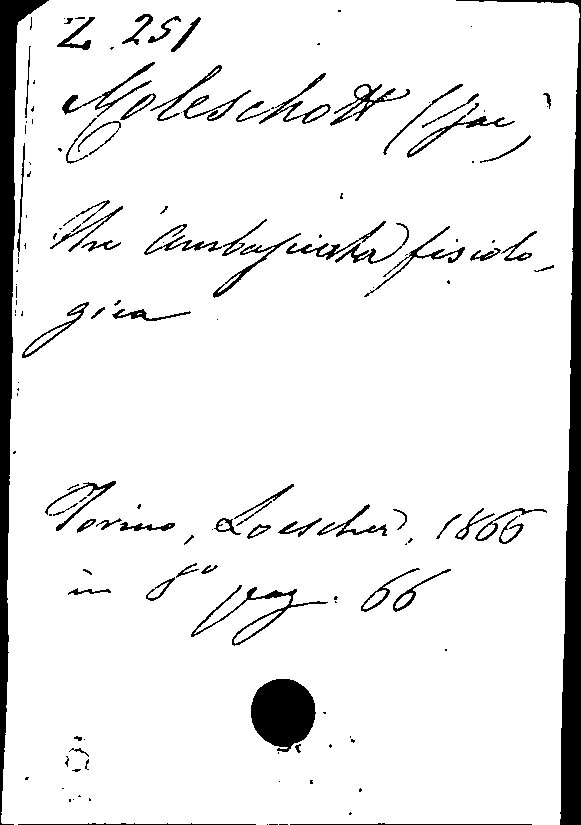 Z 251
Moleschott (Jac)
Un' ambasciata fisiolo-
gica
Torino, Loescher, 1866
in 8° pag. 66